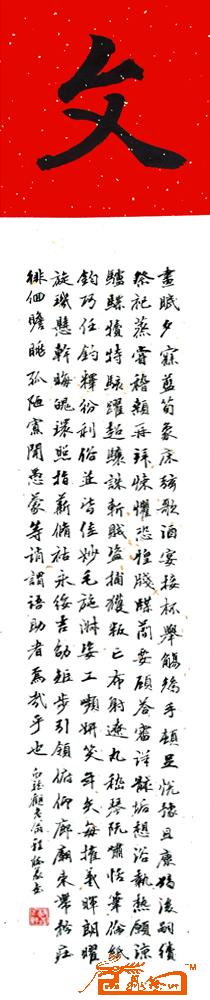 文
晝眠夕寐藍荀象床絃歌酒宴接杯舉觴矯手頓足悦豫且康嫡後嗣續
祭祀蒸嘗稽顙再拜悚懼恐惶牋牒簡要顧答審詳骸垢想浴執熱願涼
驢騾犢特駭躍超驤誅斬賊盜捕獲叛亡布射遼丸嵇琴阮嘯恬筆倫紙
鈞巧任釣釋紛利俗並皆佳妙毛施淑姿工嚬妍笑年矢每催羲暉朗曜
旋璣懸斡晦魄環照指薪脩祜永綏吉劭矩步引領俯仰廊廟束帶矜莊
徘徊瞻眺孤陋寡聞愚蒙等誚謂語助者焉哉乎也